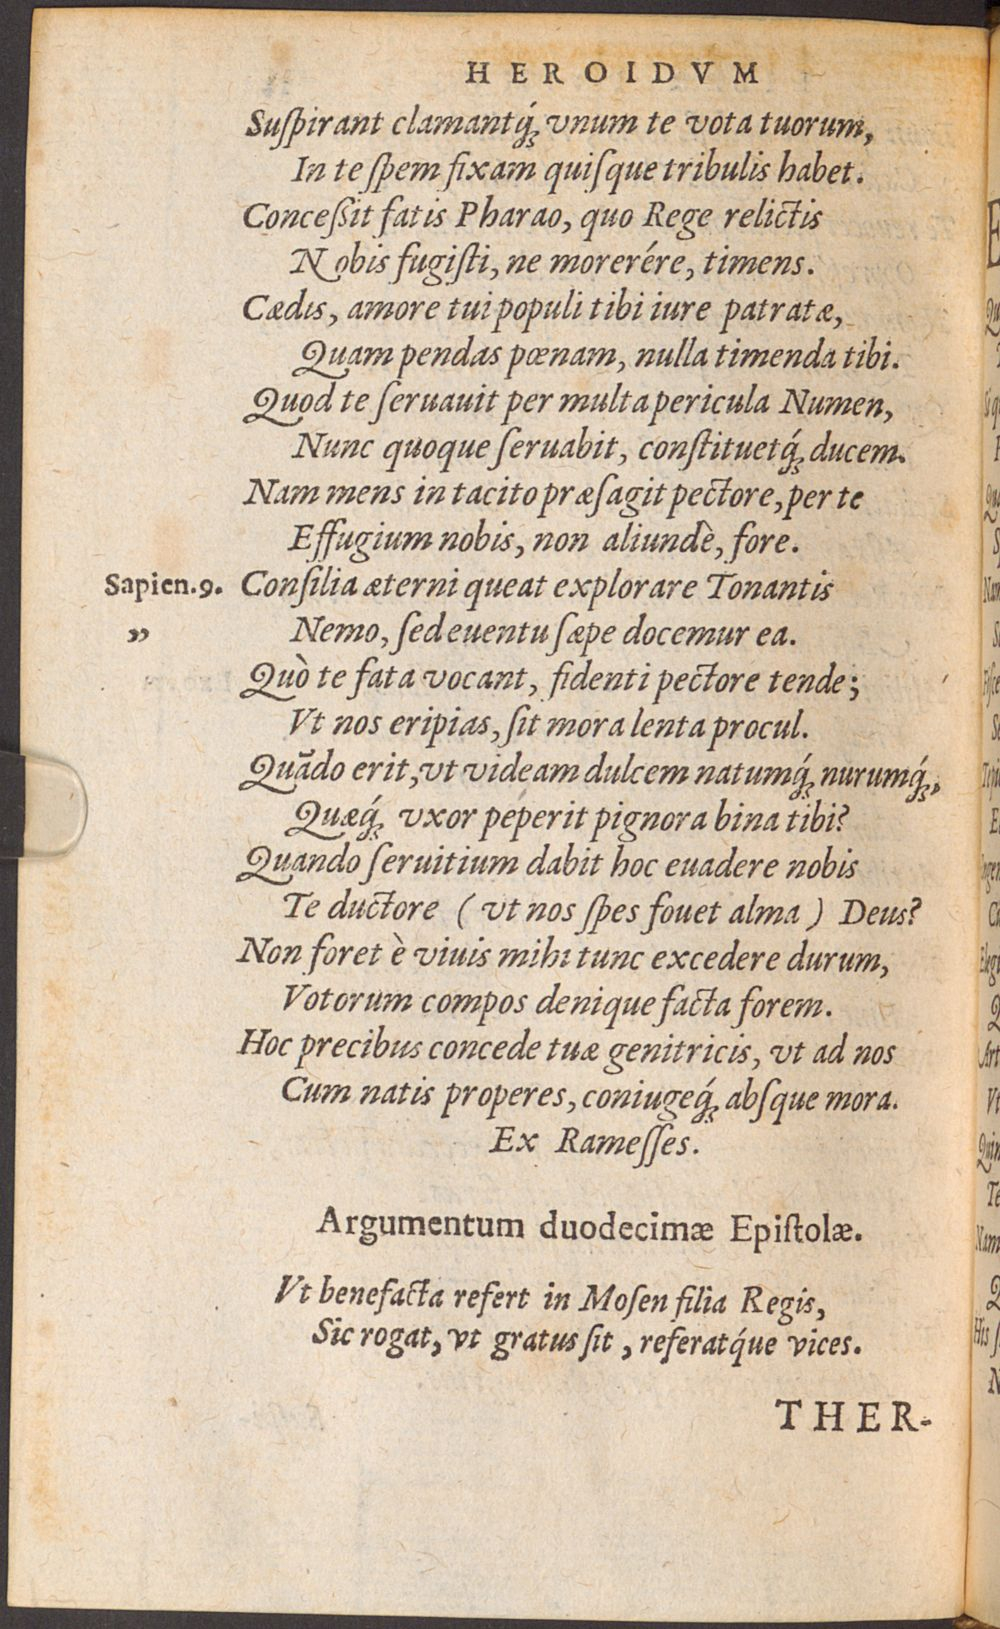 HEROIDVM
Suſpirant clamantq́ꝫ vnum te vota tuorum,
In te ſpem fixam quiſque tribulis habet.
Conceſsit fatis Pharao, quo Rege relictis
Nobis fugiſti, ne morerére, timens.
Cædis, amore tui populi tibi iure patratæ,
Quam pendas pœnam, nulla timenda tibi.
Quod te ſeruauit per multa pericula Numen,
Nunc quoque ſeruabit, conſtituetq́ꝫ ducem.
Nam mens in tacito præſagit pectore, per te
Effugium nobis, non aliundè, fore.
Sapien.9. Conſilia æterni queat explorare Tonantis
„ Nemo, ſed euentu ſæpe docemur ea.
Quò te fata vocant, fidenti pectore tende;
Vt nos eripias, ſit mora lenta procul.
Quãdo erit, vt videam dulcem natumq́ꝫ nurumq́ꝫ,
Quæq́ꝫ vxor peperit pignora bina tibi?
Quando ſeruitium dabit hoc euadere nobis
Te ductore (vt nos ſpes fouet alma) Deus?
Non foret è viuis mihi tunc excedere durum,
Votorum compos denique facta forem.
Hoc precibus concede tuæ genitricis, vt ad nos
Cum natis properes, coniugeq́ꝫ abſque mora.
Ex Rameſſes.
Argumentum duodecimæ Epiſtolæ.
Vt benefacta refert in Moſen filia Regis,
Sic rogat, vt gratus ſit, referatq́ue vices.
THER-